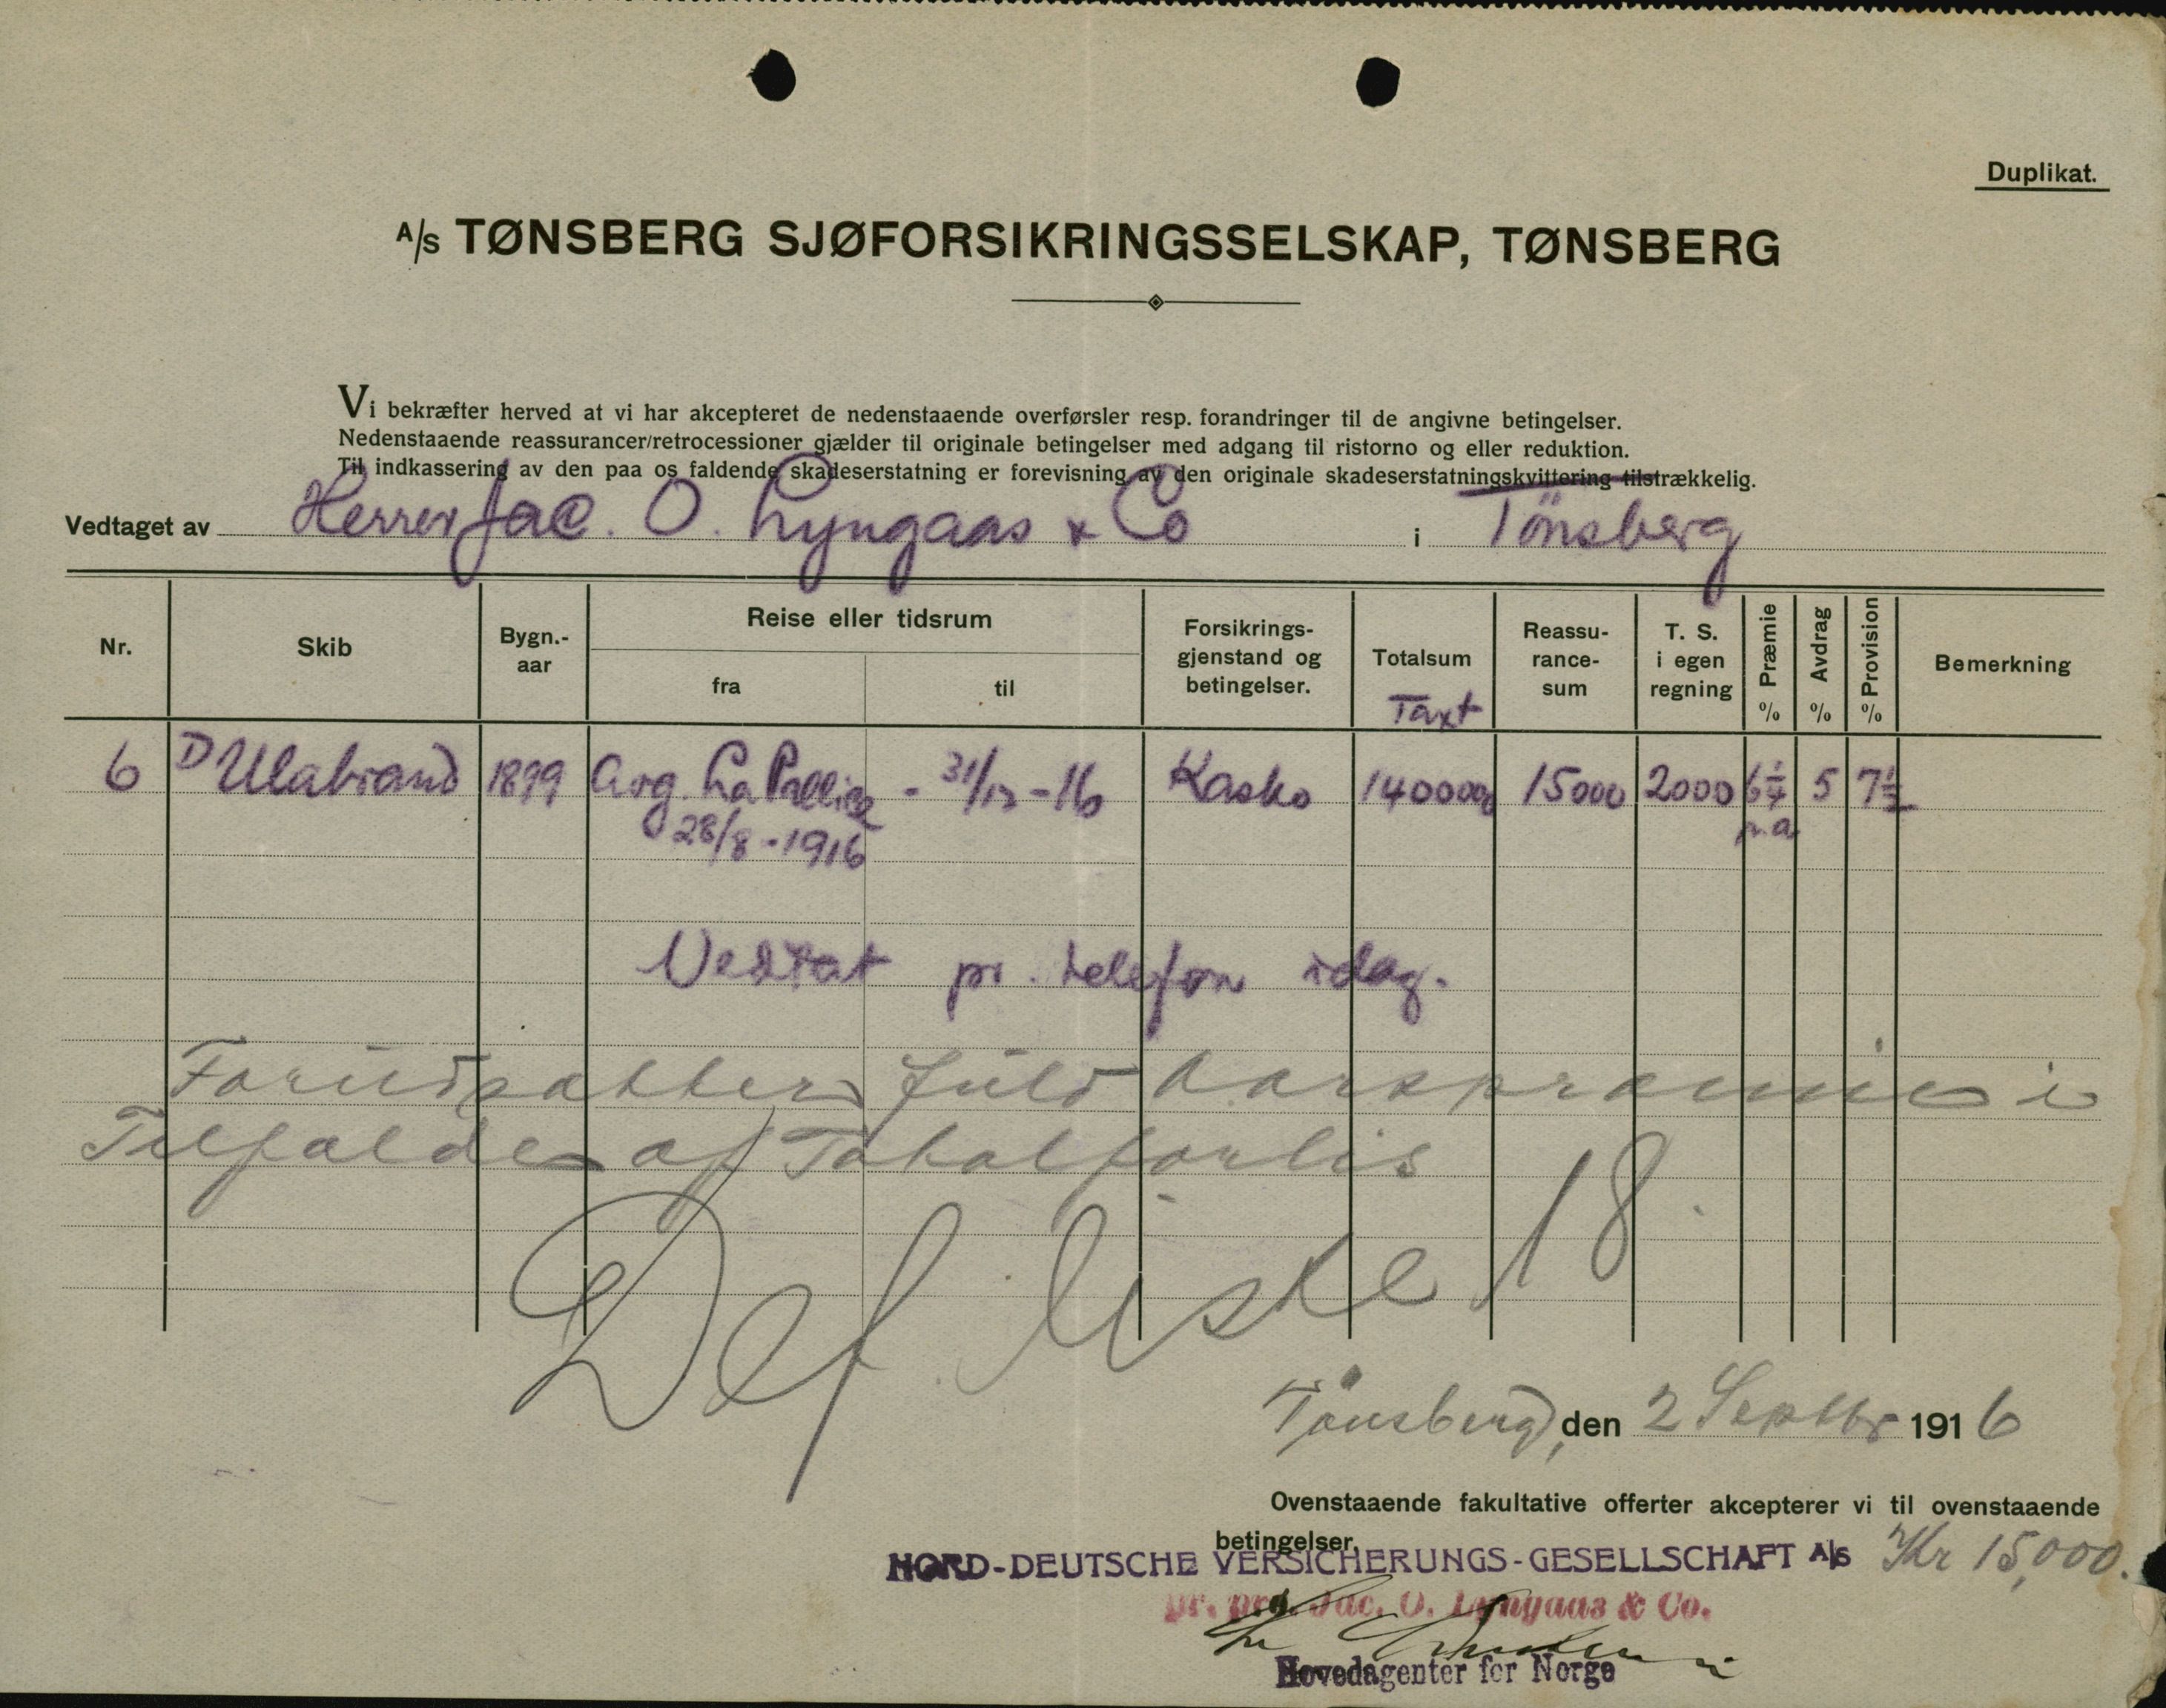 Duplikat.
A/S TØNSBERG SJØFORSIKRINGSSELSKAP, TØNSBERG
Vi bekræfter herved at vi har akcepteret de nedenstaaende overførsler resp. forandringer til de angivne betingelser.
Nedenstaaende reassurancer/retrocessioner gjælder til originale betingelser med adgang til ristorno og eller reduktion.
Til indkassering av den paa os faldende skadeserstatning er forevisning av den originale skadeserstatningskvittering tilstrækkelig.
Vedtaget av Herrer Jac. O. Lyngaas & Co i Tönsberg
Nr. Skib Bygn.-aar Reise eller tidsrum fra til Forsikrings-gjenstand og betingelser. Totalsum Taxt Reassu-rance-sum T. S. i egen regning Præmie % Avdrag % Provision % Bemerkning
6 D Ulabrand 1899 Avg. La Pallice - 31/12-16 Kasko 140000 15000 2000 6 1/4 5 7 1/2
28/8-1916 p.a
Vedtat pr. telefon idag.
Forudsætter fuld Aarspræmie i
Tilfælde af Totalforlis
Def liste 18.
Tönsberg, den 2 Septbr 1916
Ovenstaaende fakultative offerter akcepterer vi til ovenstaaende
betingelser.
NORD-DEUTSCHE VERSICHERUNGS-GESELLSCHAFT A/S Kr 15,000.
pr. pr. Jac. O. Lyngaas & Co.
Hovedagenter for Norge